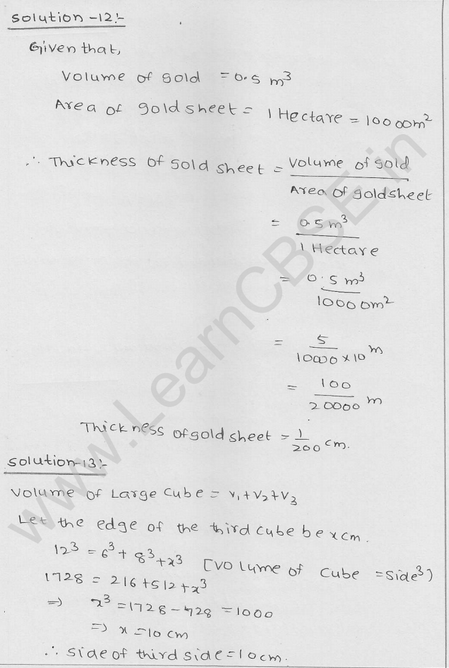 Solution-12:-
Given that,
Volume of gold = 0.5 m³
Area of gold sheet = 1 Hectare = 10000m²
∴ Thickness of gold sheet = Volume of gold / Area of goldsheet
= 0.5m³ / 1 Hectare
= 0.5 m³ / 10000m²
= 5 / 10000×10 m
= 100 / 20000 m
Thickness of gold sheet = 1/200 cm.
Solution-13:-
Volume of Large cube = V₁+V₂+V₃
Let the edge of the third cube be x cm.
12³ = 6³ + 8³ + x³ [Volume of cube = side³)
1728 = 216 + 512 + x³
⇒ x³ = 1728 - 728 = 1000
⇒ x = 10 cm
∴ Side of third side = 10cm.
www.LearnCBSE.in